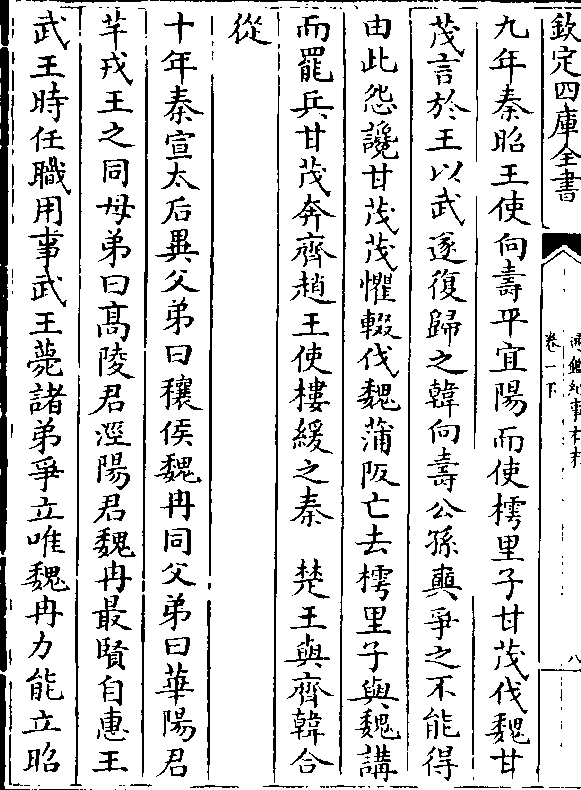 欽定四庫全書
通鑑紀事本末
卷一下
八
九年秦昭王使向壽平宜陽而使樗里子甘茂伐魏甘
茂言於王以武遂復歸之韓向壽公孫奭爭之不能得
由此怨讒甘茂茂懼輟伐魏蒲阪亡去樗里子與魏講
而罷兵甘茂奔齊趙王使樓緩之秦　楚王與齊韓合
從
十年秦宣太后異父弟曰穰侯魏冉同父弟曰華陽君
芊戎王之同母弟曰高陵君涇陽君魏冉最賢自惠王
武王時任職用事武王薨諸弟爭立唯魏冉力能立昭